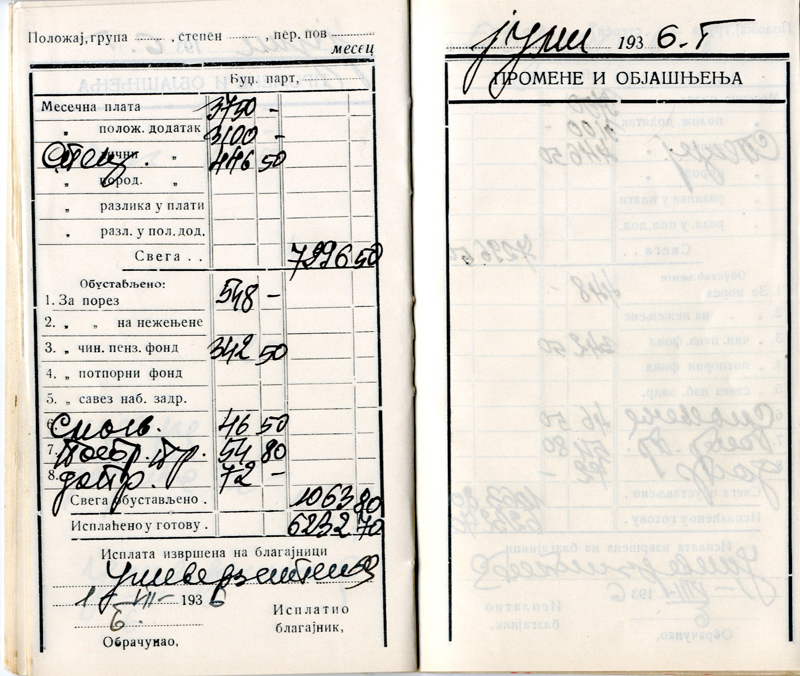 Положај, група , степен , пер. пов
месец
Буџ. парт,
Месечна плата 3750 -
„ полож. додатак 3100 -
„ лични „ 446 50
„ пород. „
„ разлика у плати
„ разл. у пол. дод.
Свега . . 7296 50
Обустављено:
1. За порез 548 -
2. „ „ на нежењене
3. „ чин. пенз. фонд 342 50
4. „ потпорни фонд
5. „ савез наб. задр.
6. 46 50
7. 54 80
8. 72 -
Свега обустављено . 1063 80
Исплаћено у готову . 6232 70
Исплата извршена на благајници
Универзитета
1 - VII - 1936
6.
Исплатио
благајник,
Обрачунао,
јули 1936. г
ПРОМЕНЕ И ОБЈАШЊЕЊА